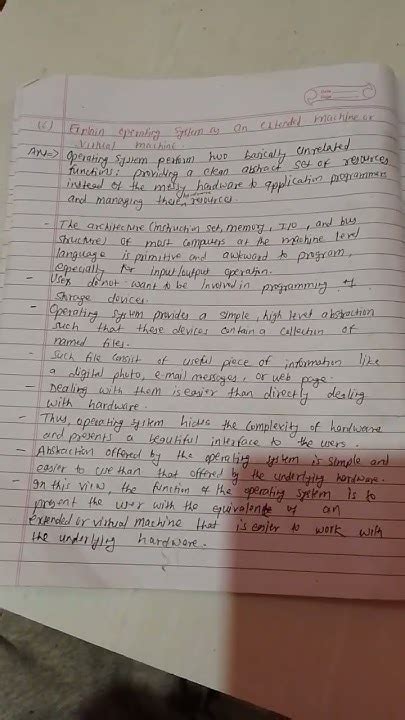 (6) Explain operating System as an extended machine or
virtual machine.
Ans=> Operating System perform two basically unrelated
functions: providing a clean abstract set of resources
instead of the messy hardware to application programmers
and managing these hardware resources.
- The architecture (instruction set, memory, I/O, and bus
structure) of most computers at the machine level
language is primitive and awkward to program,
especially for input/output operation.
- User do not want to be involved in programming of
storage devices.
- Operating System provides a simple, high level abstraction
such that these devices contain a collection of
named files.
- Such file consist of useful piece of information like
a digital photo, e-mail messages, or web page.
- Dealing with them is easier than directly dealing
with hardware.
- Thus, operating system hides the complexity of hardware
and presents a beautiful interface to the users.
- Abstraction offered by the operating system is simple and
easier to use than that offered by the underlying hardware.
- In this view, the function of the operating system is to
present the user with the equivalent of an
extended or virtual machine that is easier to work with
the underlying hardware.